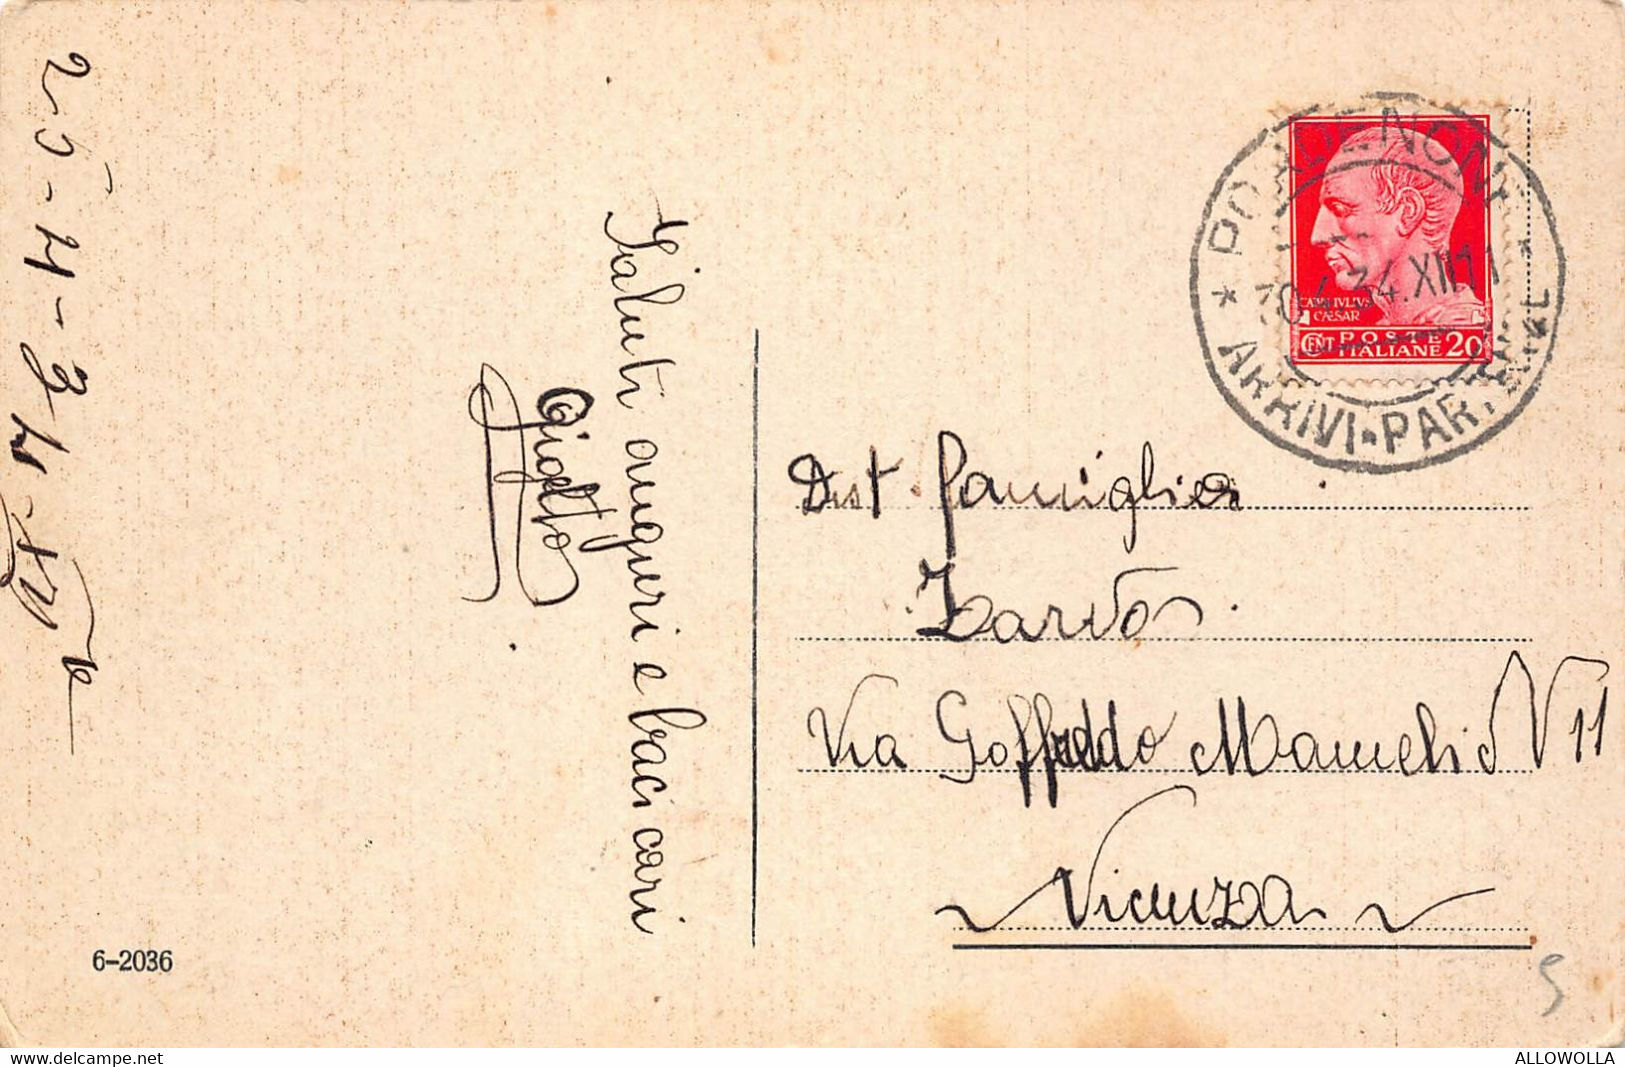 25-4-34-XII
Saluti auguri e baci cari
Gigetto
6-2036
PORDENONE
30.4.34.XII 11
ARRIVI-PARTENZE
CAIVS IVLIVS
CÆSAR
CENT POSTE
ITALIANE 20
Dist. Famiglia
Zardo
Via Goffredo Mameli N 11
Vicenza
5
www.delcampe.net
ALLOWOLLA